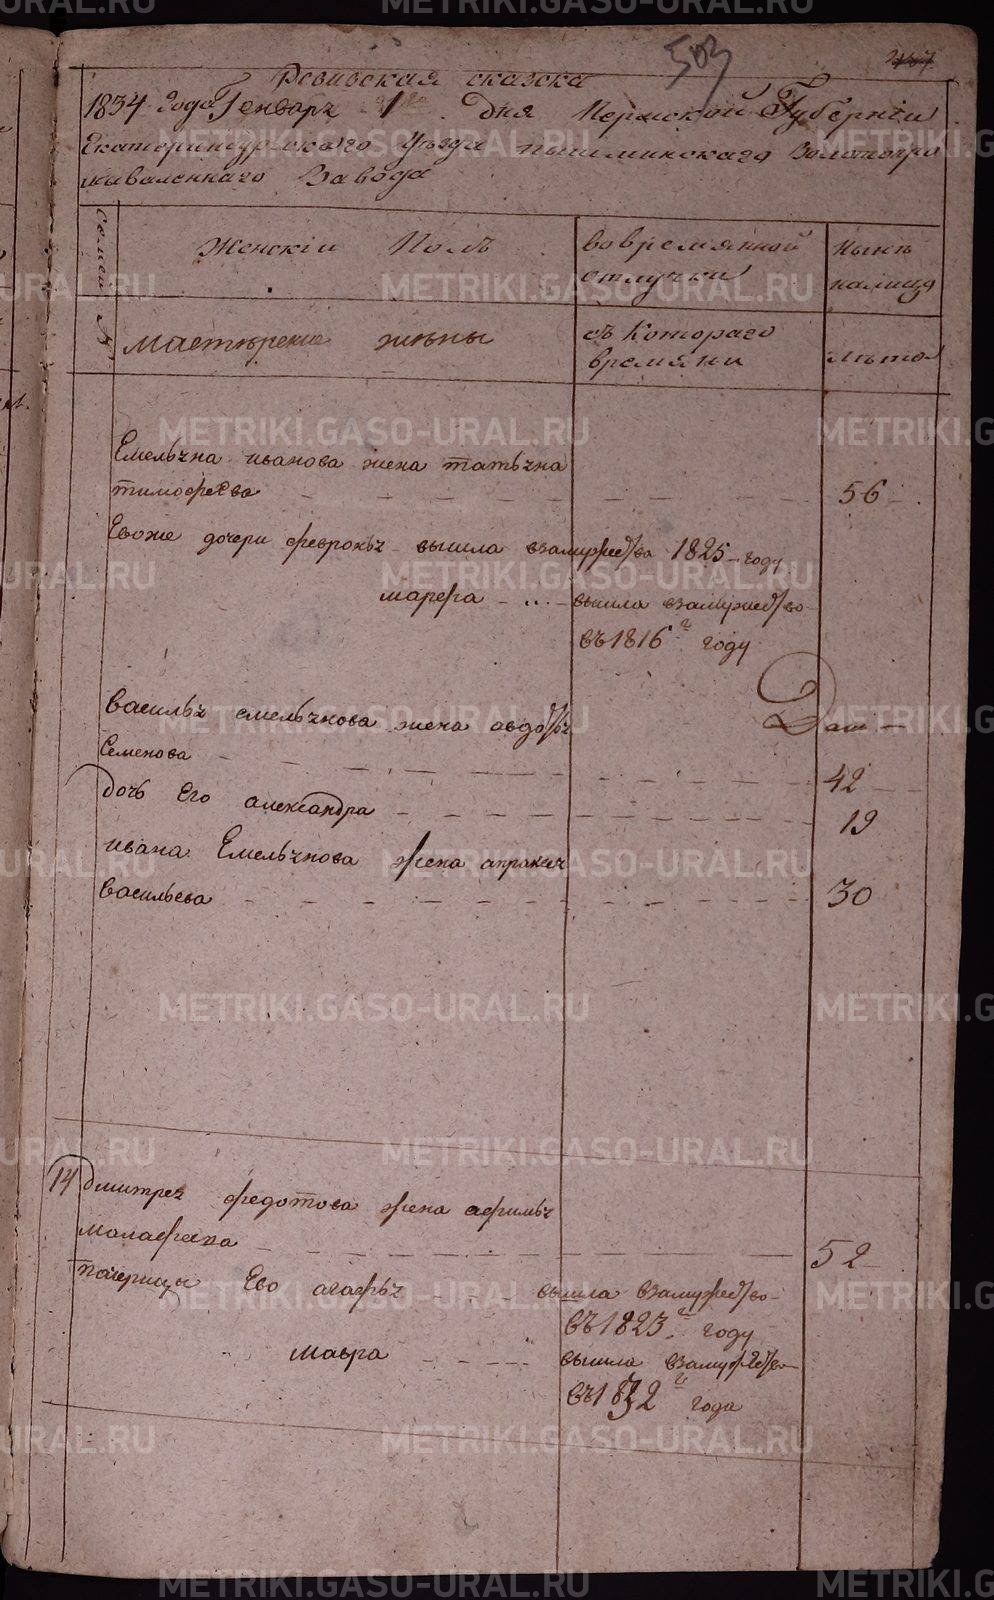 503
Ревивская сказка
1834 года Генваря 1 дня Пермской Губернiи
Екатеринбургскаго уезда пышминскаго золотопро
мываленнаго Завода
семей
№
Женскiи Полъ
во времянной
отлучки
нынѣ
налицо
мастерские жены
съ Котораго
времяни
лѣта
Емельяна иванова жена татьяна
тимофеева
56
Евоже дочери феврокья вышла взамужество 1825 году
марфа
вышла взамужество
въ 1816 г году
Василья емельянова жена авдотья
Семенова
42
дочь Его александра
19
ивана Емельянова жена апракси
Васильева
30
14
дмитрея федотова жена афимья
малафеева
52
пачерицы Ево агафья
вышла взамужество
въ 1823 г году
мавра
вышла взамужество
въ 1832 г года
METRIKI.GASO-URAL.RU